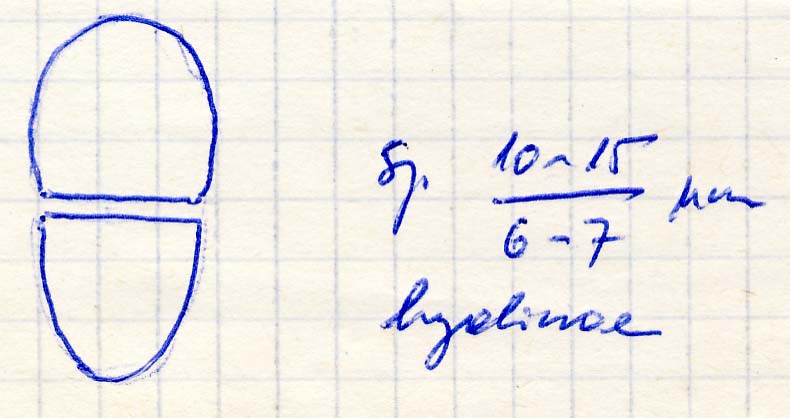 Sp. 10-15
6-7 µm
hyalinae